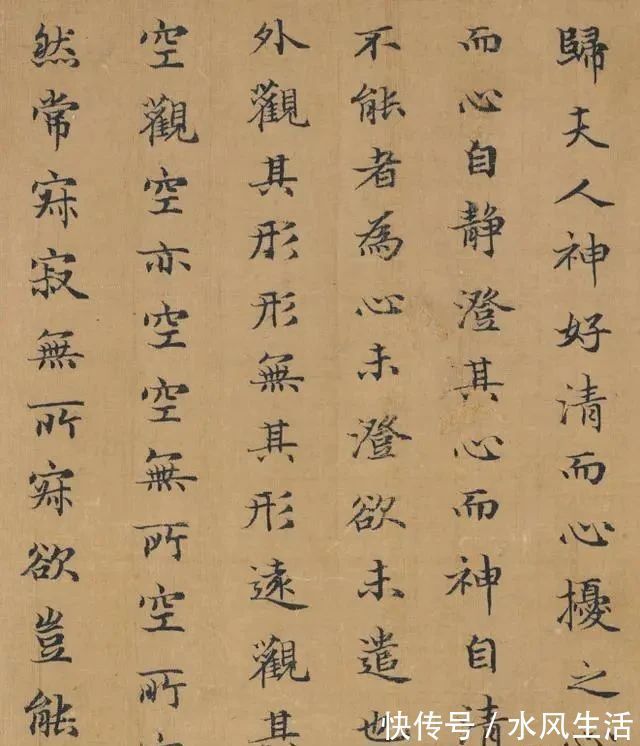 歸夫人神好清而心擾之
而心自靜澄其心而神自清
不能者為心未澄欲未遣也
外觀其形形無其形遠觀其
空觀空亦空空無所空所空
然常寂寂無所寂欲豈能
快传号/水风生活